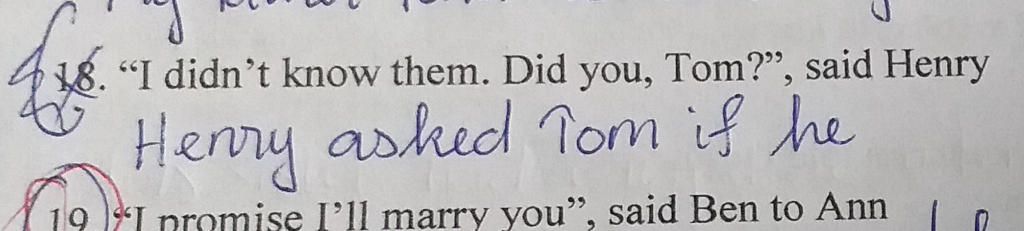 18. “I didn’t know them. Did you, Tom?”, said Henry
Henry asked Tom if he
19 “I promise I’ll marry you”, said Ben to Ann